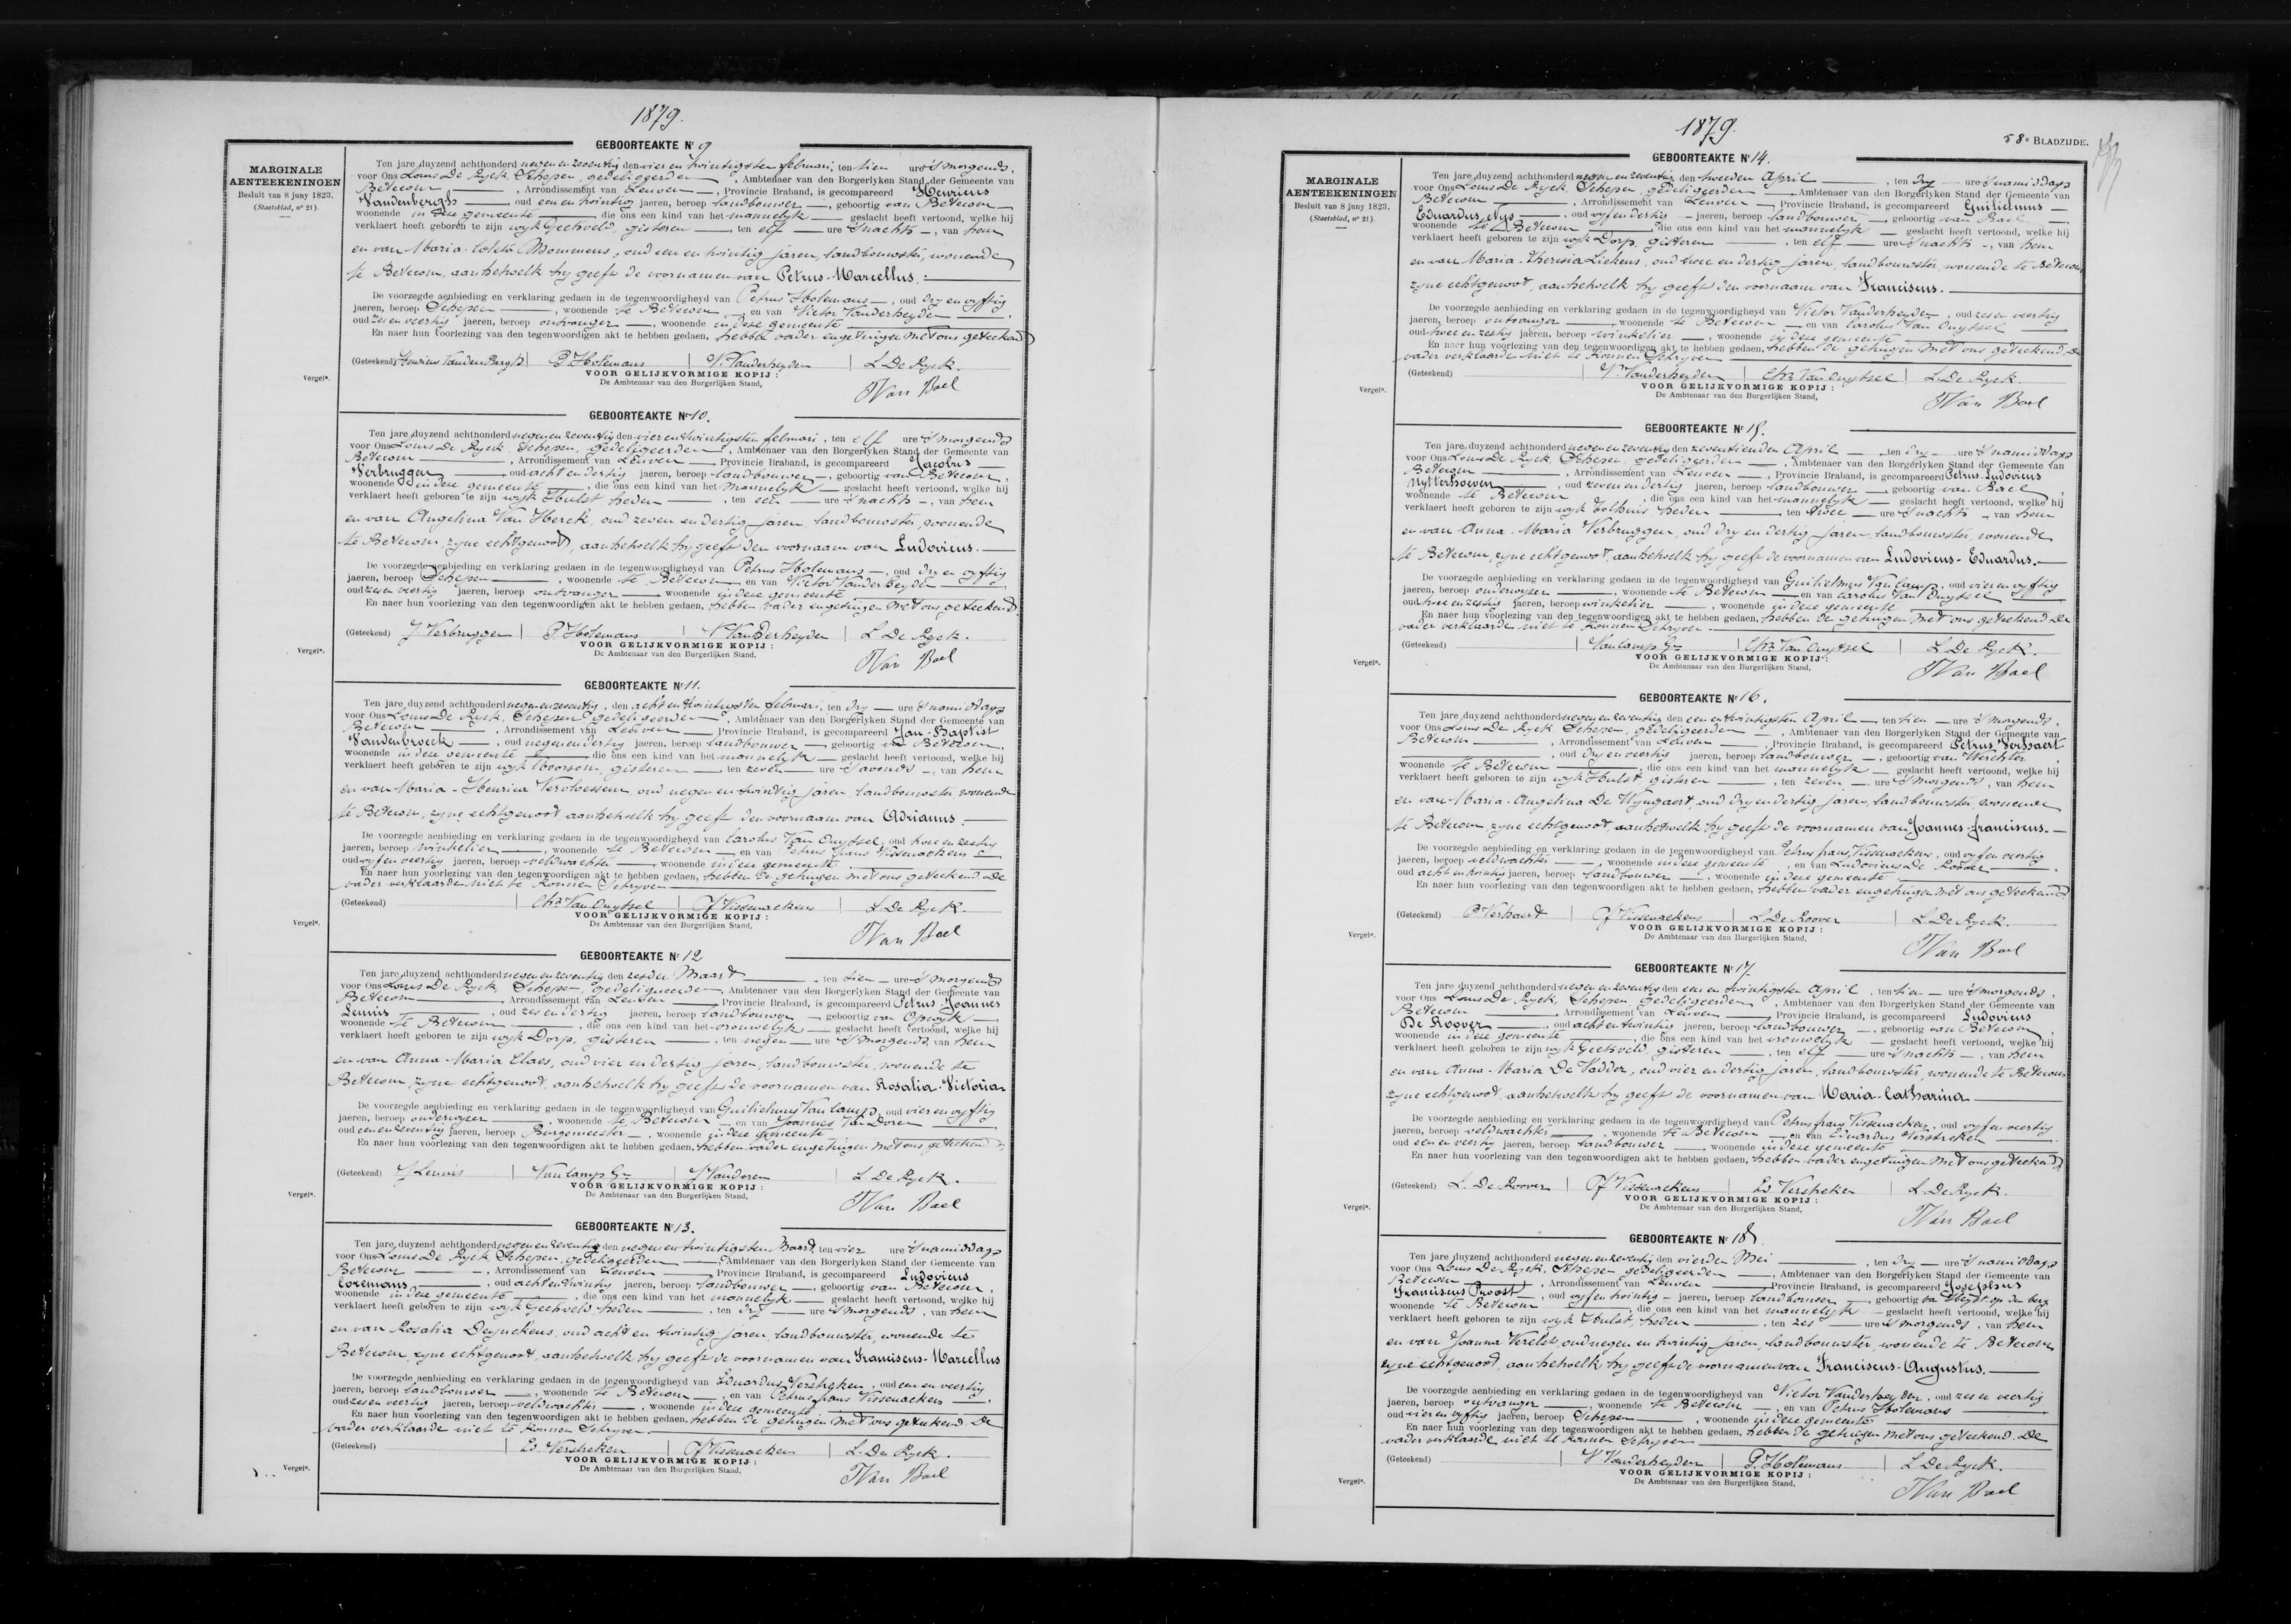 1879.
GEBOORTEAKTE Nr 9
MARGINALE
AENTEEKENINGEN
Besluit van 8 juny 1823.
(Staetsblad, nº 21).
Ten jare duyzend achthonderd negen en zeventig den vier en twintigsten februari, ten tien ure 's morgends,
voor Ons Louis De Ryck, Schepen, gedeligeerden, Ambtenaer van den Borgerlyken Stand der Gemeente van
Betecom, Arrondissement van Leuven, Provincie Braband, is gecompareerd Henricus
Vandenbergh, oud een en twintig jaeren, beroep landbouwer, geboortig van Betecom
woonende in deze gemeente, die ons een kind van het mannelyk geslacht heeft vertoond, welke hij
verklaert heeft geboren te zijn wyk Geetveld, gisteren, ten elf ure 's nachts, van hem
en van Maria-Coleta Mommens, oud een en twintig jaren, landbouwster, woonende
te Betecom, aan hetwelk hy geeft de voornamen van Petrus-Marcellus.
De voorzegde aenbieding en verklaring gedaen in de tegenwoordigheyd van Petrus Holemans, oud dry en vyftig
jaeren, beroep Schepen, woonende te Betecom, en van Victor Vanderheyden
oud zes en veertig jaeren, beroep ontvanger, woonende in deze gemeente
En naer hun voorlezing van den tegenwoordigen akt te hebben gedaen, hebben vader en getuigen met ons geteekend
(Geteekend) Henricus VandenBergh | P. Holemans | V. Vanderheyden | L. De Ryck.
VOOR GELIJKVORMIGE KOPIJ :
De Ambtenaar van den Burgerlijken Stand,
Vergeln.
Van Bael
GEBOORTEAKTE Nr 10.
Ten jare duyzend achthonderd negen en zeventig den vier en twintigsten februari, ten elf ure 's morgends
voor Ons Louis De Ryck, Schepen, gedeligeerden, Ambtenaer van den Borgerlyken Stand der Gemeente van
Betecom, Arrondissement van Leuven, Provincie Braband, is gecompareerd Jacobus
Verbruggen, oud acht en dertig jaeren, beroep landbouwer, geboortig van Betecom,
woonende in deze gemeente, die ons een kind van het mannelyk geslacht heeft vertoond, welke hij
verklaert heeft geboren te zijn wyk Hulst heden, ten een ure 's nachts, van hem
en van Angelina Van Herck, oud zeven en dertig jaren, landbouwster, woonende
te Betecom, zyne echtgenoot, aan hetwelk hy geeft den voornaam van Ludovicus.
De voorzegde aenbieding en verklaring gedaen in de tegenwoordigheyd van Petrus Holemans, oud dry en vyftig
jaeren, beroep Schepen, woonende te Betecom en van Victor Vanderheyden
oud zes en veertig jaeren, beroep ontvanger, woonende in deze gemeente
En naer hun voorlezing van den tegenwoordigen akt te hebben gedaen, hebben vader en getuigen met ons geteekend
(Geteekend) J. Verbruggen | P. Holemans | V. Vanderheyden | L. De Ryck.
VOOR GELIJKVORMIGE KOPIJ :
De Ambtenaar van den Burgerlijken Stand,
Vergeln.
Van Bael
GEBOORTEAKTE Nr 11.
Ten jare duyzend achthonderd negen en zeventig, den acht en twintigsten februari, ten dry ure 's namiddags
voor Ons Louis De Ryck, Schepen gedeligeerden, Ambtenaer van den Borgerlyken Stand der Gemeente van
Betecom, Arrondissement van Leuven, Provincie Braband, is gecompareerd Jan-Baptist
Vandenbroeck, oud negen en dertig jaeren, beroep landbouwer, geboortig van Betecom,
woonende in deze gemeente, die ons een kind van het mannelyk geslacht heeft vertoond, welke hij
verklaert heeft geboren te zijn wyk, gisteren, ten zeven ure 's avonds, van hem
en van Maria-Henrica Vervloessem, oud negen en twintig jaren, landbouwster woonende
te Betecom, zyne echtgenoot aan hetwelk hy geeft den voornaam van Adrianus.
De voorzegde aenbieding en verklaring gedaen in de tegenwoordigheyd van Carolus Van Ouytsel, oud twee en zestig
jaeren, beroep winkelier, woonende te Betecom, en van Petrus frans Vissenaekens
oud vyf en veertig jaeren, beroep veldwachter, woonende in deze gemeente
En naer hun voorlezing van den tegenwoordigen akt te hebben gedaen, hebben de getuigen met ons geteekend. De
vader verklaarde niet te konnen Schryven
(Geteekend) | Chs Van Ouytsel | Pf Vissenaekens | L. De Ryck.
VOOR GELIJKVORMIGE KOPIJ :
De Ambtenaar van den Burgerlijken Stand,
Vergeln.
Van Bael
GEBOORTEAKTE Nr 12
Ten jare duyzend achthonderd negen en zeventig den zesden Maart, ten tien ure 's morgends
voor Ons Louis De Ryck, Schepen, gedeligeerden, Ambtenaer van den Borgerlyken Stand der Gemeente van
Betecom, Arrondissement van Leuven, Provincie Braband, is gecompareerd Petrus-Joannes
Lemis, oud zes en dertig jaeren, beroep landbouwer, geboortig van Opwyk,
woonende te Betecom, die ons een kind van het vrouwelyk geslacht heeft vertoond, welke hij
verklaert heeft geboren te zijn wyk Dorp, gisteren, ten negen ure 's morgends, van hem
en van Anna-Maria Claes, oud vier en dertig jaren, landbouwster, woonende te
Betecom, zyne echtgenoot, aan hetwelk hy geeft de voornamen van Rosalia-Victoria
De voorzegde aenbieding en verklaring gedaen in de tegenwoordigheyd van Guilielmus Vanlamp, oud vier en vyftig
jaeren, beroep onderwyzer, woonende te Betecom, en van Joannes Van Doren
oud een en zeventig jaeren, beroep Burgemeester, woonende in deze gemeente
En naer hun voorlezing van den tegenwoordigen akt te hebben gedaen, hebben vader en getuigen met ons geteekend
(Geteekend) | Vanlamp Gm | J Vandoren | L. De Ryck.
VOOR GELIJKVORMIGE KOPIJ :
De Ambtenaar van den Burgerlijken Stand,
Vergeln.
Van Bael
GEBOORTEAKTE Nr 13.
Ten jare duyzend achthonderd negen en zeventig den negen en twintigsten Maart, ten vier ure 's namiddags
voor Ons Louis De Ryck Schepen, gedeligeerden, Ambtenaer van den Borgerlyken Stand der Gemeente van
Betecom, Arrondissement van Leuven, Provincie Braband, is gecompareerd Ludovicus
Coremans, oud acht en twintig jaeren, beroep landbouwer, geboortig van Betecom,
woonende in deze gemeente, die ons een kind van het mannelyk geslacht heeft vertoond, welke hij
verklaert heeft geboren te zijn wyk Geetveld heden, ten dry ure 's morgends, van hem
en van Rosalia Deynckens, oud acht en twintig jaren, landbouwster, woonende te
Betecom, zyne echtgenoot, aan hetwelk hy geeft de voornamen van Franciscus-Marcellus
De voorzegde aenbieding en verklaring gedaen in de tegenwoordigheyd van Eduardus Verstreken, oud een en veertig
jaeren, beroep landbouwer, woonende te Betecom, en van Petrus frans Vissenaekens
oud zes en veertig jaeren, beroep veldwachter, woonende in deze gemeente
En naer hun voorlezing van den tegenwoordigen akt te hebben gedaen, hebben de getuigen met ons geteekend De
vader verklaarde niet te konnen Schryven.
(Geteekend) | Ed. Verstreken | Pf Vissenaekens | L. De Ryck.
VOOR GELIJKVORMIGE KOPIJ :
De Ambtenaar van den Burgerlijken Stand,
Vergeln.
Van Bael
1879.
58e BLADZIJDE.
GEBOORTEAKTE Nr 14.
MARGINALE
AENTEEKENINGEN
Besluit van 8 juny 1823.
(Staetsblad, nº 21).
Ten jare duyzend achthonderd negen en zeventig den tweeden April, ten dry ure 's namiddags
voor Ons Louis De Ryck, Schepen, gedeligeerden, Ambtenaer van den Borgerlyken Stand der Gemeente van
Betecom, Arrondissement van Leuven, Provincie Braband, is gecompareerd Guilielmus
Eduardus Nys, oud vyf en dertig jaeren, beroep landbouwer, geboortig van Bael
woonende te Betecom, die ons een kind van het mannelyk geslacht heeft vertoond, welke hij
verklaert heeft geboren te zijn wyk Dorp, gisteren, ten elf ure 's nachts, van hem
en van Maria-Theresia Liekens, oud twee en dertig jaren, landbouwster, woonende te Betecom
zyne echtgenoot, aan hetwelk hy geeft den voornaam van Franciscus.
De voorzegde aenbieding en verklaring gedaen in de tegenwoordigheyd van Victor Vanderheyden, oud zes en veertig
jaeren, beroep ontvanger, woonende te Betecom, en van Carolus Van Ouytsel
oud twee en zestig jaeren, beroep winkelier, woonende in deze gemeente
En naer hun voorlezing van den tegenwoordigen akt te hebben gedaen, hebben de getuigen met ons geteekend, De
vader verklaarde niet te konnen Schryven
(Geteekend) | V. Vanderheyden | Chs Van Ouytsel | L. De Ryck.
VOOR GELIJKVORMIGE KOPIJ :
De Ambtenaar van den Burgerlijken Stand,
Vergeln.
Van Bael
GEBOORTEAKTE Nr 15.
Ten jare duyzend achthonderd negen en zeventig den zeventienden April, ten dry ure 's namiddags
voor Ons Louis De Ryck, Schepen, gedeligeerden, Ambtenaer van den Borgerlyken Stand der Gemeente van
Betecom, Arrondissement van Leuven, Provincie Braband, is gecompareerd Petrus-Ludovicus
Uytterhoeven, oud zeven en dertig jaeren, beroep landbouwer, geboortig van Bael,
woonende te Betecom, die ons een kind van het mannelyk geslacht heeft vertoond, welke hij
verklaert heeft geboren te zijn wyk Tolhuis heden, ten twee ure 's nachts, van hem
en van Anna-Maria Verbruggen, oud dry en dertig jaren, landbouwster, woonende
te Betecom, zyne echtgenoot, aan hetwelk hy geeft de voornamen van Ludovicus-Eduardus.
De voorzegde aenbieding en verklaring gedaen in de tegenwoordigheyd van Guilielmus Vanlamp, oud vier en vyftig
jaeren, beroep onderwyzer, woonende te Betecom, en van Carolus Van Ouytsel
oud twee en zestig jaeren, beroep winkelier, woonende in deze gemeente
En naer hun voorlezing van den tegenwoordigen akt te hebben gedaen, hebben de getuigen met ons geteekend De
vader verklaarde niet te konnen Schryven.
(Geteekend) | Vanlamp Gm | Chs Van Ouytsel | L. De Ryck.
VOOR GELIJKVORMIGE KOPIJ :
De Ambtenaar van den Burgerlijken Stand,
Vergeln.
Van Bael
GEBOORTEAKTE Nr 16.
Ten jare duyzend achthonderd negen en zeventig den een en twintigsten April, ten tien ure 's morgends,
voor Ons Louis De Ryck Schepen, gedeligeerden, Ambtenaer van den Borgerlyken Stand der Gemeente van
Betecom, Arrondissement van Leuven, Provincie Braband, is gecompareerd Petrus Verhaert
, oud dry en veertig jaeren, beroep landbouwer, geboortig van Werchter,
woonende te Betecom, die ons een kind van het mannelyk geslacht heeft vertoond, welke hij
verklaert heeft geboren te zijn wyk Hulst gisteren, ten zeven ure 's morgends, van hem
en van Maria-Angelina De Wyngaert, oud dry en dertig jaren, landbouwster, woonende
te Betecom, zyne echtgenoot, aan hetwelk hy geeft de voornamen van Joannes-Franciscus.
De voorzegde aenbieding en verklaring gedaen in de tegenwoordigheyd van Petrus frans Vissenaekens, oud vyf en veertig
jaeren, beroep veldwachter, woonende in deze gemeente, en van Ludovicus De Roover
oud acht en twintig jaeren, beroep landbouwer, woonende in deze gemeente
En naer hun voorlezing van den tegenwoordigen akt te hebben gedaen, hebben vader en getuigen met ons geteekend
(Geteekend) P. Verhaert | Pf Vissenaekens | L. De Roover | L. De Ryck.
VOOR GELIJKVORMIGE KOPIJ :
De Ambtenaar van den Burgerlijken Stand,
Vergeln.
Van Bael
GEBOORTEAKTE Nr 17.
Ten jare duyzend achthonderd negen en zeventig den een en twintigsten April, ten tien ure 's morgends,
voor Ons Louis De Ryck, Schepen, gedeligeerden, Ambtenaer van den Borgerlyken Stand der Gemeente van
Betecom, Arrondissement van Leuven, Provincie Braband, is gecompareerd Ludovicus
De Roover, oud acht en twintig jaeren, beroep landbouwer, geboortig van Betecom,
woonende in deze gemeente, die ons een kind van het vrouwelyk geslacht heeft vertoond, welke hij
verklaert heeft geboren te zijn wyk Geetveld, gisteren, ten elf ure 's nachts, van hem
en van Anna-Maria De Vadder, oud vier en dertig jaren, landbouwster, woonende te Betecom
zyne echtgenoot, aan hetwelk hy geeft de voornamen van Maria-Catharina
De voorzegde aenbieding en verklaring gedaen in de tegenwoordigheyd van Petrus frans Vissenaekens, oud vyf en veertig
jaeren, beroep veldwachter, woonende te Betecom, en van Eduardus Verstreken
oud een en veertig jaeren, beroep landbouwer, woonende in deze gemeente
En naer hun voorlezing van den tegenwoordigen akt te hebben gedaen, hebben vader en getuigen met ons geteekend
(Geteekend) L. De Roover | Pf Vissenaekens | Ed Verstreken | L. De Ryck.
VOOR GELIJKVORMIGE KOPIJ :
De Ambtenaar van den Burgerlijken Stand,
Vergeln.
Van Bael
GEBOORTEAKTE Nr 18.
Ten jare duyzend achthonderd negen en zeventig den vierden Mei, ten dry ure 's namiddags
voor Ons Louis De Ryck, Schepen gedeligeerden, Ambtenaer van den Borgerlyken Stand der Gemeente van
Betecom, Arrondissement van Leuven, Provincie Braband, is gecompareerd Josephus
Franciscus Proost, oud vyf en twintig jaeren, beroep landbouwer, geboortig van Heyst op den berg
woonende te Betecom, die ons een kind van het mannelyk geslacht heeft vertoond, welke hij
verklaert heeft geboren te zijn wyk Hulst, heden, ten zes ure 's morgends, van hem
en van Joanna Verelst, oud negen en twintig jaren, landbouwster, woonende te Betecom
zyne echtgenoot, aan hetwelk hy geeft de voornamen van Franciscus-Augustus.
De voorzegde aenbieding en verklaring gedaen in de tegenwoordigheyd van Victor Vanderheyden, oud zes en veertig
jaeren, beroep ontvanger, woonende te Betecom, en van Petrus Holemans
oud vier en vyftig jaeren, beroep Schepen, woonende in deze gemeente
En naer hun voorlezing van den tegenwoordigen akt te hebben gedaen, hebben de getuigen met ons geteekend. De
vader verklaarde niet te konnen Schryven
(Geteekend) | V Vanderheyden | P. Holemans | L. De Ryck.
VOOR GELIJKVORMIGE KOPIJ :
De Ambtenaar van den Burgerlijken Stand,
Vergeln.
Van Bael